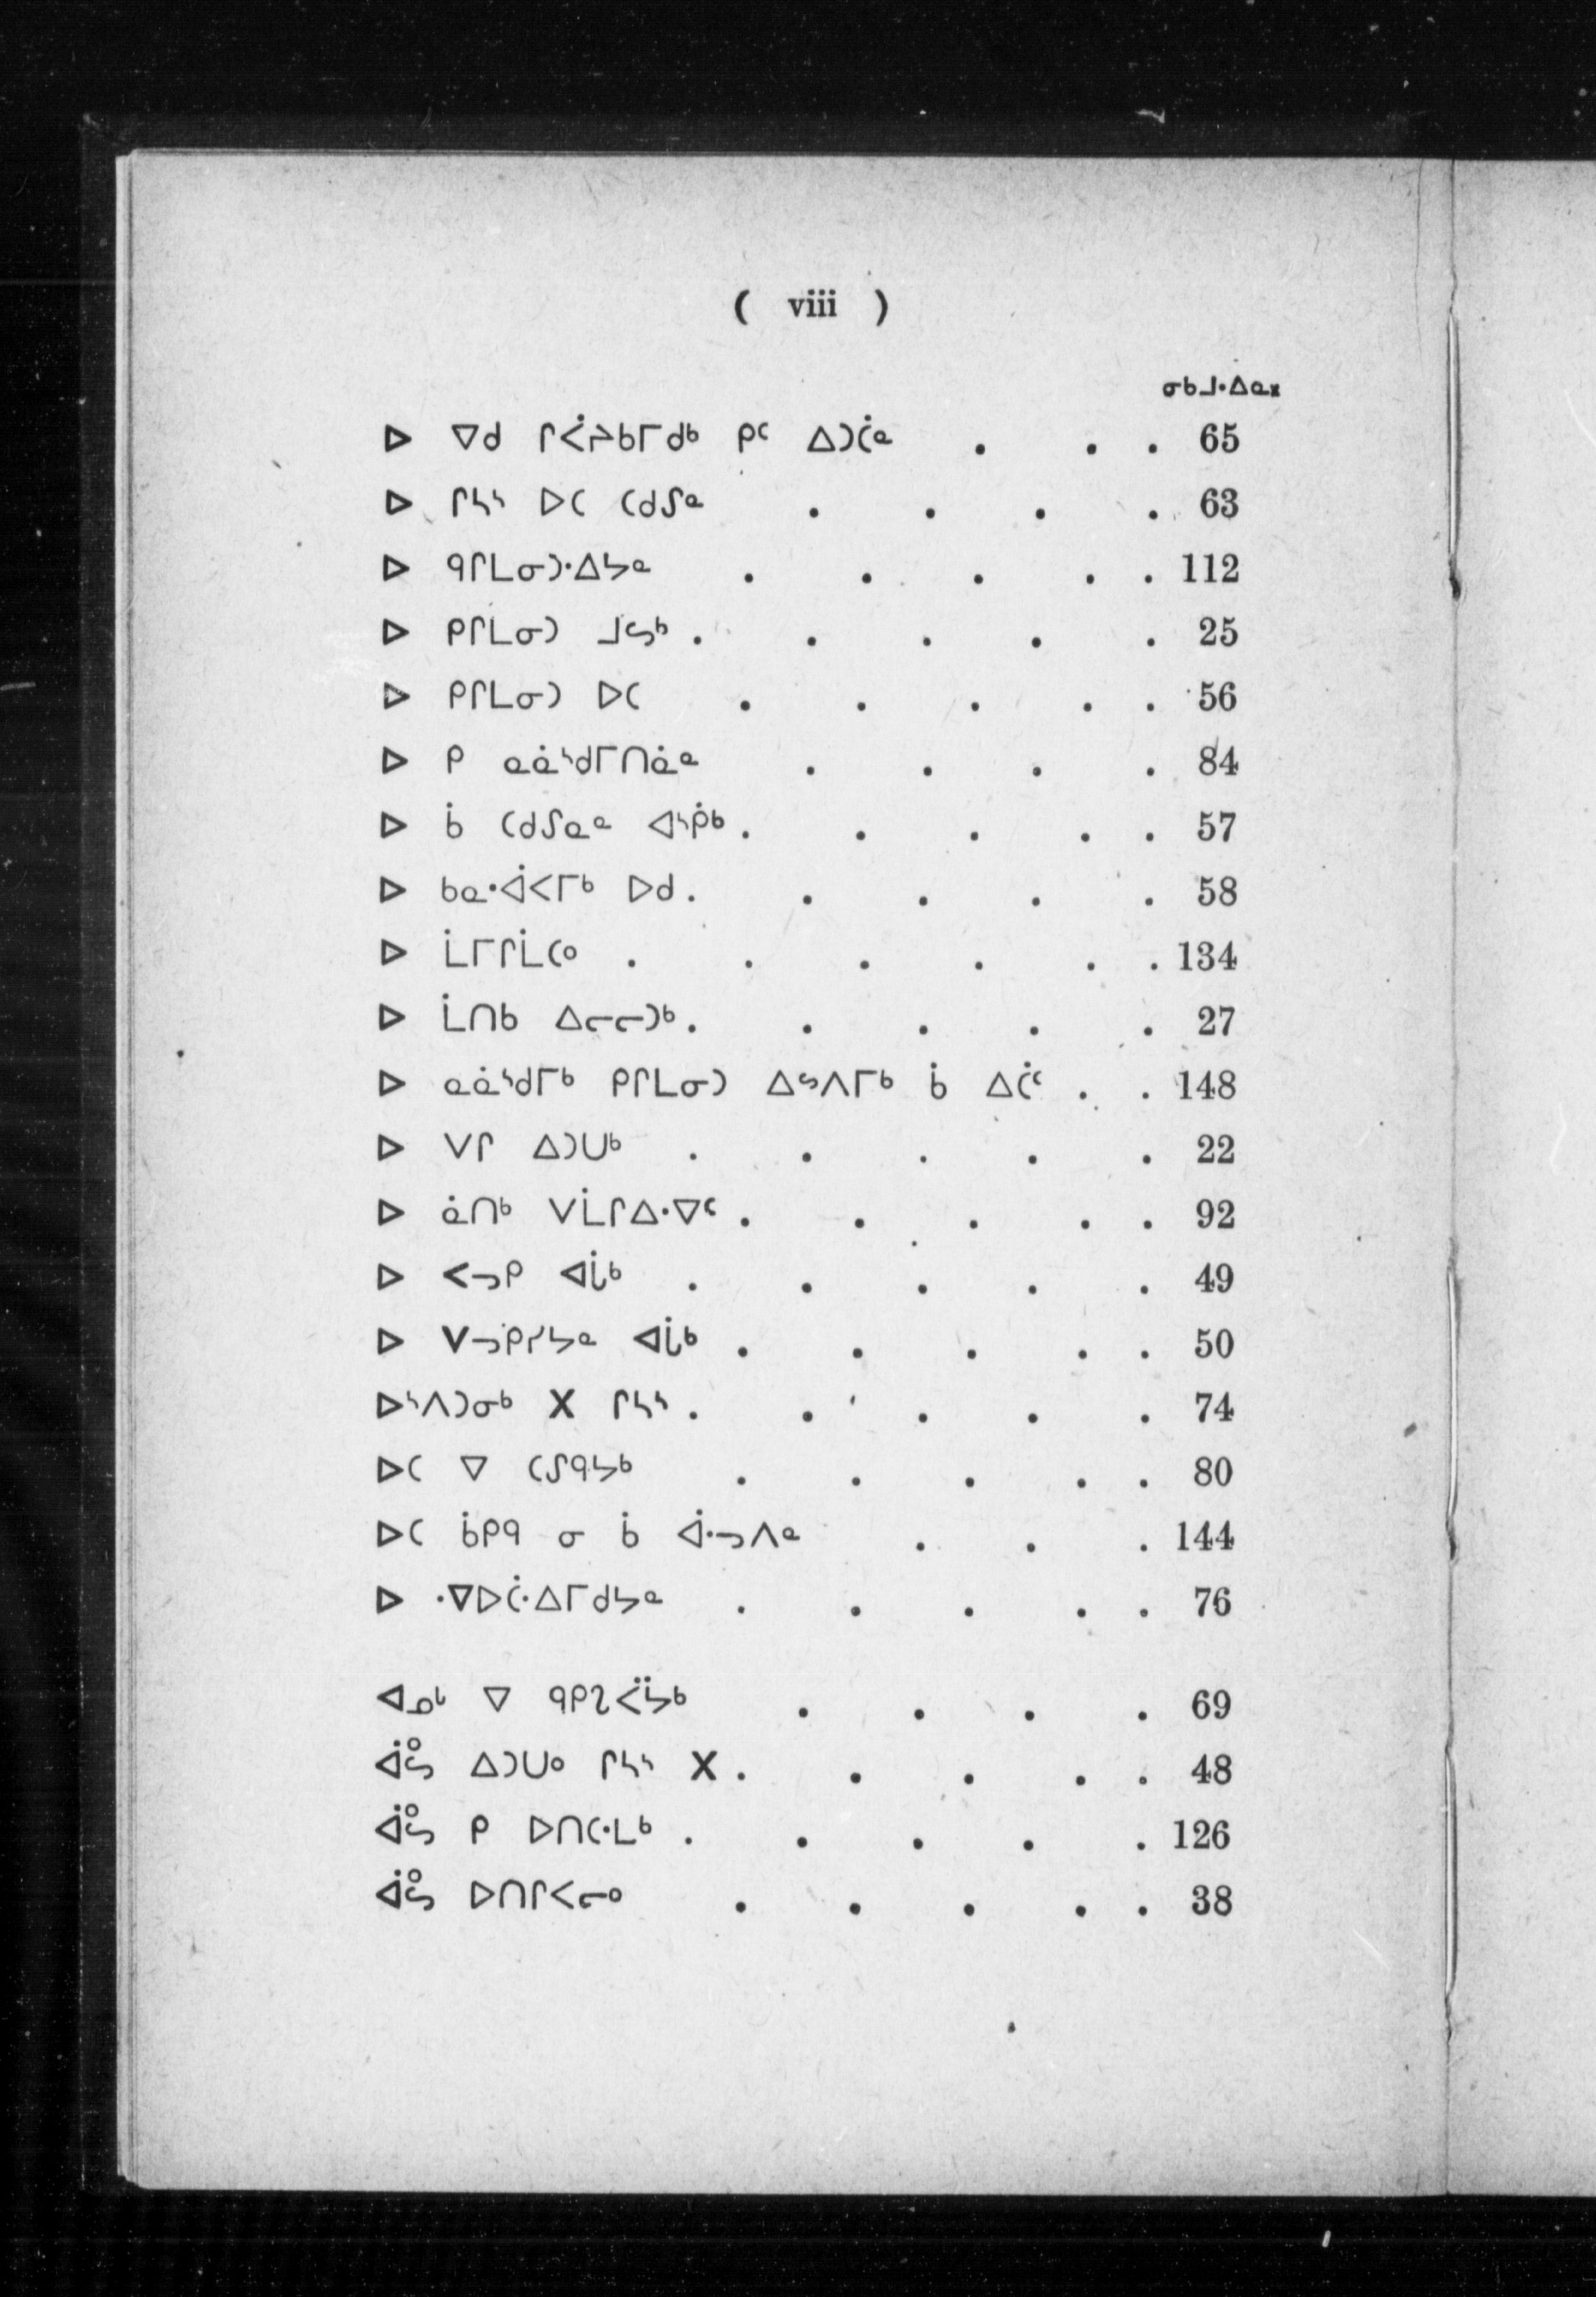 ( viii )
ᓂᑲᒧᐧᐃᓇ᙮
ᐅ ᐁᑯ ᒋᐹᔨᑲᒥᑯᒃ ᑭᑦ ᐃᑐᑖᓐ . . . 65
ᐅ ᒋᓴᔅ ᐅᑕ ᑕᑯᔑᓐ . . . . 63
ᐅ ᑫᒋᒪᓂᑐᐧᐃᔭᓐ . . . . . 112
ᐅ ᑭᒋᒪᓂᑐ ᒧᓯᒃ . . . . . 25
ᐅ ᑭᒋᒪᓂᑐ ᐅᑕ . . . . . 56
ᐅ ᑭ ᓇᓈᔅᑯᒥᑎᓈᓐ . . . . 84
ᐅ ᑳ ᑕᑯᔑᓇᓐ ᐊᔅᑮᒃ . . . . . 57
ᐅ ᑲᓇᐧᐋᐸᒥᒃ ᐅᑯ . . . . . 58
ᐅ ᒫᒥᒋᒫᑕᐤ . . . . . . 134
ᐅ ᒫᑎᑲ ᐃᓕᓕᑐᒃ . . . . . 27
ᐅ ᓇᓈᔅᑯᒥᒃ ᑭᒋᒪᓂᑐ ᐃᔥᐱᒥᒃ ᑳ ᐃᑖᑦ . . 148
ᐅ ᐯᒋ ᐃᑐᑌᒃ . . . . . 22
ᐅ ᓈᑎᒃ ᐯᒫᒋᐃᐧᐁᑦ . . . . . 92
ᐅ ᐸᓗᑭ ᐊᒑᒃ . . . . . 49
ᐅ ᐯᓗᑭᓯᔭᓐ ᐊᒑᒃ . . . . . 50
ᐅᔅᐱᑐᓂᒃ X ᒋᓴᔅ . . . . . 74
ᐅᑕ ᐁ ᑕᔑᑫᔭᒃ . . . . . 80
ᐅᑕ ᑳᑭᑫ ᓂ ᑳ ᐋᐧᓗᐱᓐ . . . 144
ᐅ ᐧᐁᐅᑖᐧᐃᒥᑯᔭᓐ . . . . . 76
ᐊᓄᒡ ᐁ ᑫᑭᔐᐹᔮᒃ . . . . 69
ᐋᐤᓯ ᐃᑐᑌᐤ ᒋᓴᔅ X . . . . . 48
ᐋᐤᓯ ᑭ ᐅᑎᑕᐧᒪᒃ . . . . . 126
ᐋᐤᓯ ᐅᑎᒋᐸᓕᐤ . . . . . 38